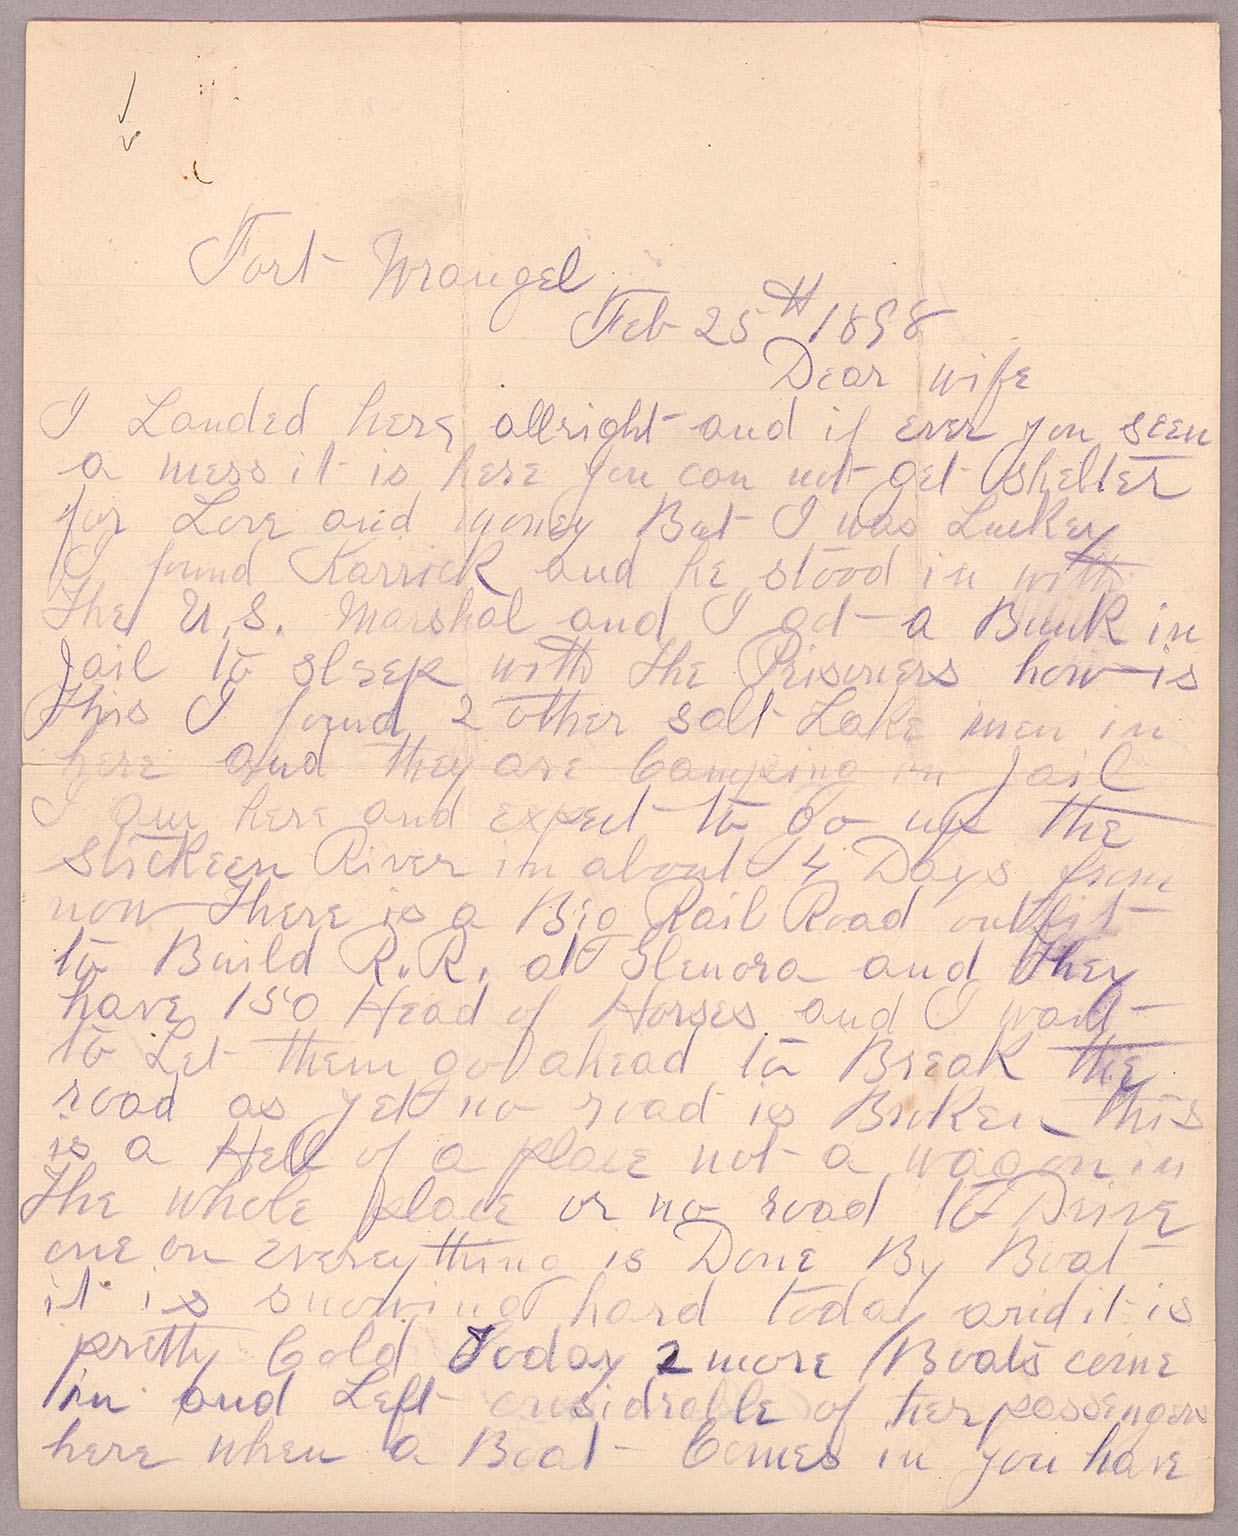 Fort Wrangel
Feb 25th 1898
Dear wife
I Landed here allright and if ever you seen
a mess it is here you can not get shelter
for Love and money But I was Luckey
I found Karrick and he stood in with
the U.S. Marshal and I got a Bunk in
Jail to sleep with the Prisoners how is
this I found 2 other Salt Lake men in
here and they are Camping in Jail
I am here and expect to go up the
Stickeen River in about 14 Days from
now There is a Big Rail Road outfit
to Build R.R. at Glenora and they
have 150 Head of Horses and I want
to Let them go ahead to Break the
road as yet no road is Broken this
is a Hell of a place not a wagon in
the whole place or no road to Drive
one on everything is Done By Boat
it is snowing hard today and it is
pretty Cold Today 2 more Boats come
in and Left considrable of her passengers
here when a Boat Comes in you have